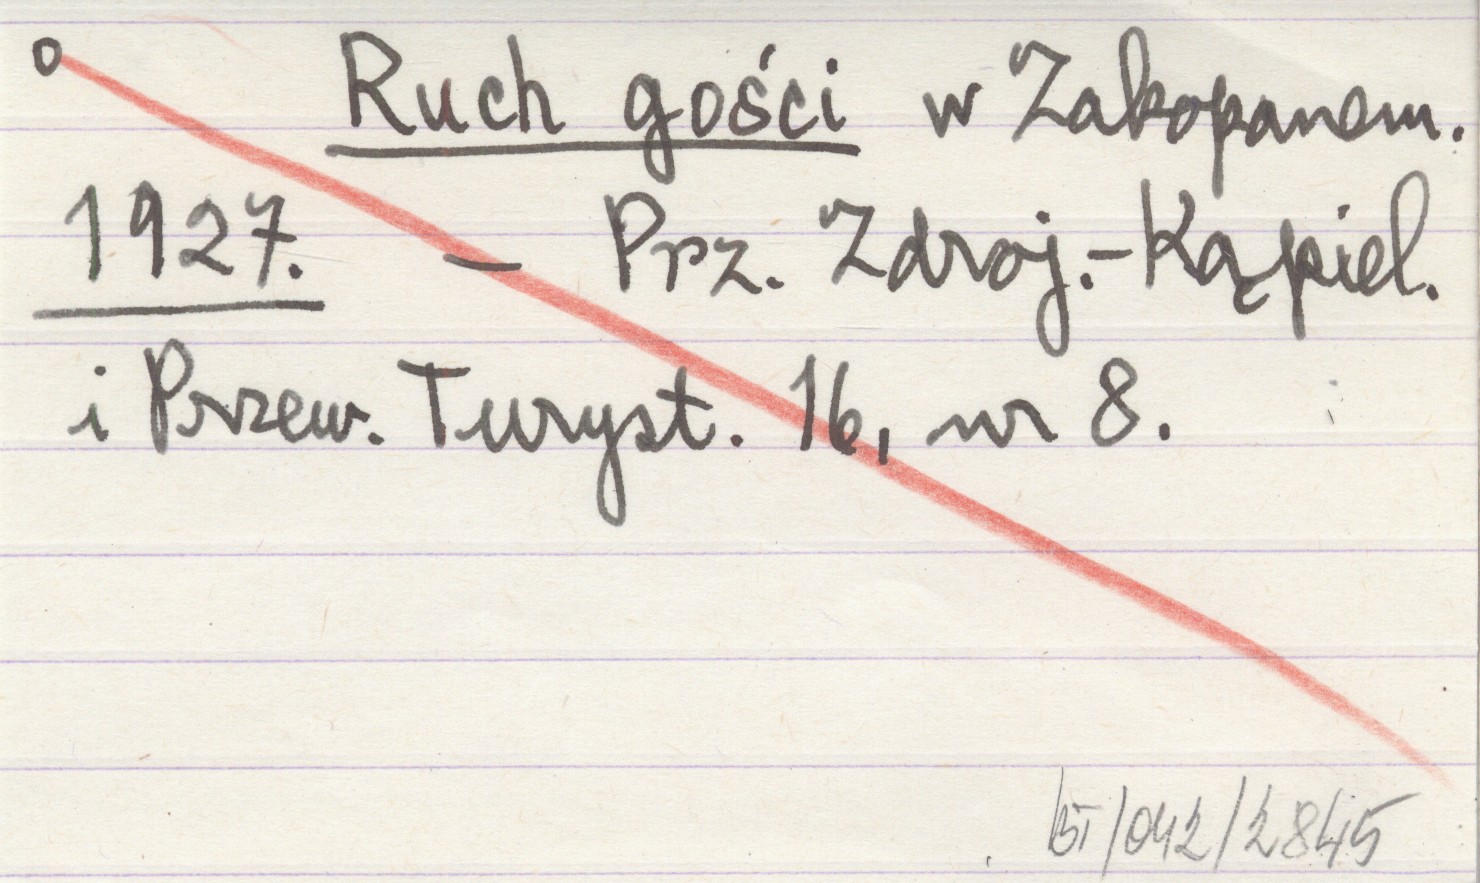 o Ruch gości w Zakopanem.
1927. — Prz. Zdroj.-Kąpiel.
i Przew. Turyst. 16, nr 8.
/042/2845